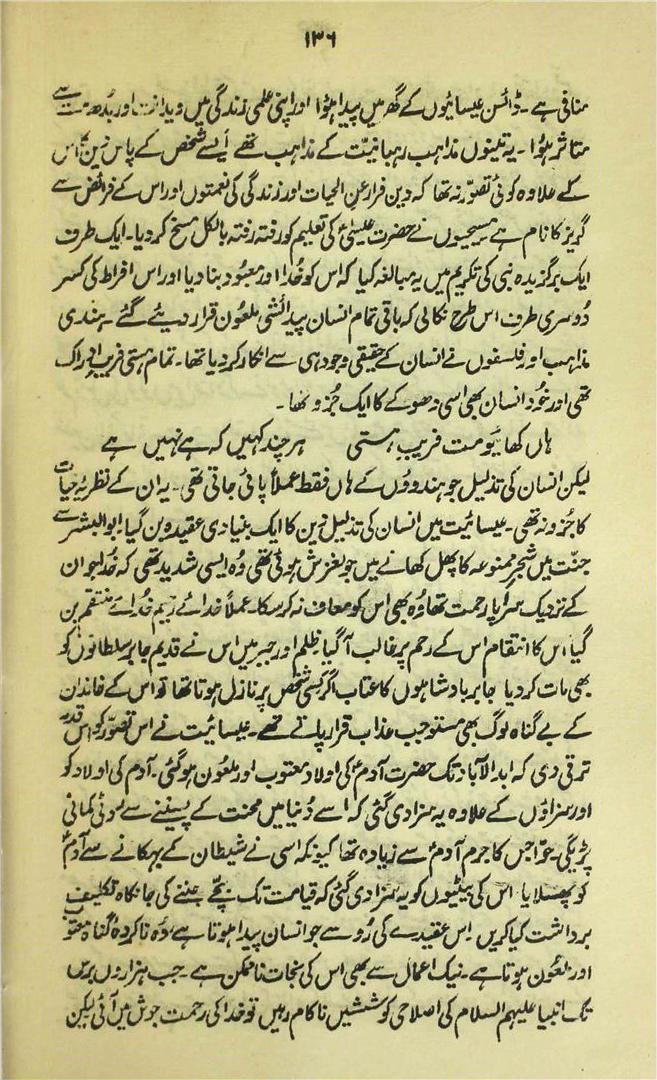 ۱۳۶
منافی ہے۔ ڈائسن عیسائیوں کے گھر میں پیدا ہؤا اور اپنی علمی زندگی میں ویدانت اور بُدھ مت سے
متاثر ہؤا۔ یہ تینوں مذاہب رہبانیت کے مذاہب تھے ایسے شخص کے پاس اس
کے علاوہ کوئی تصوّر نہ تھا کہ دین فرار عن الحیات اور زندگی کی نعمتوں اور اس کے فرائض سے
گریز کا نام ہے مسیحیوں نے حضرت عیسیٰؑ کی تعلیم کو رفتہ رفتہ بالکل مسخ کر دیا۔ ایک طرف
ایک برگزیدہ نبی کی تکریم میں یہ مبالغہ کیا کہ اس کو خُدا اور معبود بنا دیا اور اس افراط کی کسر
دُوسری طرف اس طرح نکالی کہ باقی تمام انسان پیدائشی ملعُون قرار دیئے گئے۔ ہندی
مذاہب اور فلسفوں نے انسان کے حقیقی وجود ہی سے انکار کر دیا تھا۔ تمام ہستی فریبِ ادراک
تھی اور خُود انسان بھی اسی دھوکے کا ایک جُزو تھا۔
ہاں کھائیو مت فریبِ ہستی ہر چند کہیں کہ ہے نہیں ہے
لیکن انسان کی تذلیل جو ہندوؤں کے ہاں فقط عملاً پائی جاتی تھی۔ یہ ان کے نظریۂ حیات
کا جُزو نہ تھی۔ عیسائیت میں انسان کی تذلیل دین کا ایک بنیادی عقیدہ بن گیا۔ ابوالبشر سے
جنّت میں شجرِ ممنوعہ کا پھل کھانے میں جو لغزش ہوئی تھی وُہ ایسی شدید تھی کہ خُدا جو ان
کے نزدیک سراپا رحمت تھا وُہ بھی اس کو معاف نہ کر سکا۔ عملاً خدائے رحیم خُدائے منتقم بن
گیا، اس کا انتقام اس کے رحم پر غالب آ گیا ظلم اور جبر میں اس نے قدیم جابر سلطانوں کو
بھی مات کر دیا جابر بادشاہوں کا عتاب اگر کسی شخص پر نازل ہوتا تھا تو اس کے خاندان
کے بے گناہ لوگ بھی مستوجب عذاب قرار پاتے تھے۔ عیسائیت نے اس تصوّر کو اس قدر
ترقی دی کہ ابدالآباد تک حضرت آدمؑ کی اولاد معتوب اور ملعُون ہو گئی۔ آدم کی اولاد کو
اور سزاؤں کے علاوہ یہ سزا دی گئی کہ اسے دُنیا میں محنت کے پسینے سے روٹی کمانی
پڑیگی۔ حوّا جس کا جرم آدمؑ سے زیادہ تھا کیونکہ اسی نے شیطان کے بہکانے سے آدمؑ
کو پھسلایا اس کی بیٹیوں کو یہ سزا دی گئی کہ قیامت تک بچّے جننے کی جانکاہ تکلیف
برداشت کیا کریں۔ اِس عقیدے کی رُو سے جو انسان پیدا ہوتا ہے وُہ ناکردہ گناہ معتوب
اور ملعُون ہوتا ہے۔ نیک اعمال سے بھی اس کی نجات ناممکن ہے۔ جب ہزاروں برس
تک انبیا علیہم السلام کی اصلاحی کوششیں ناکام رہیں تو خدا کی رحمت جوش میں آئی لیکن